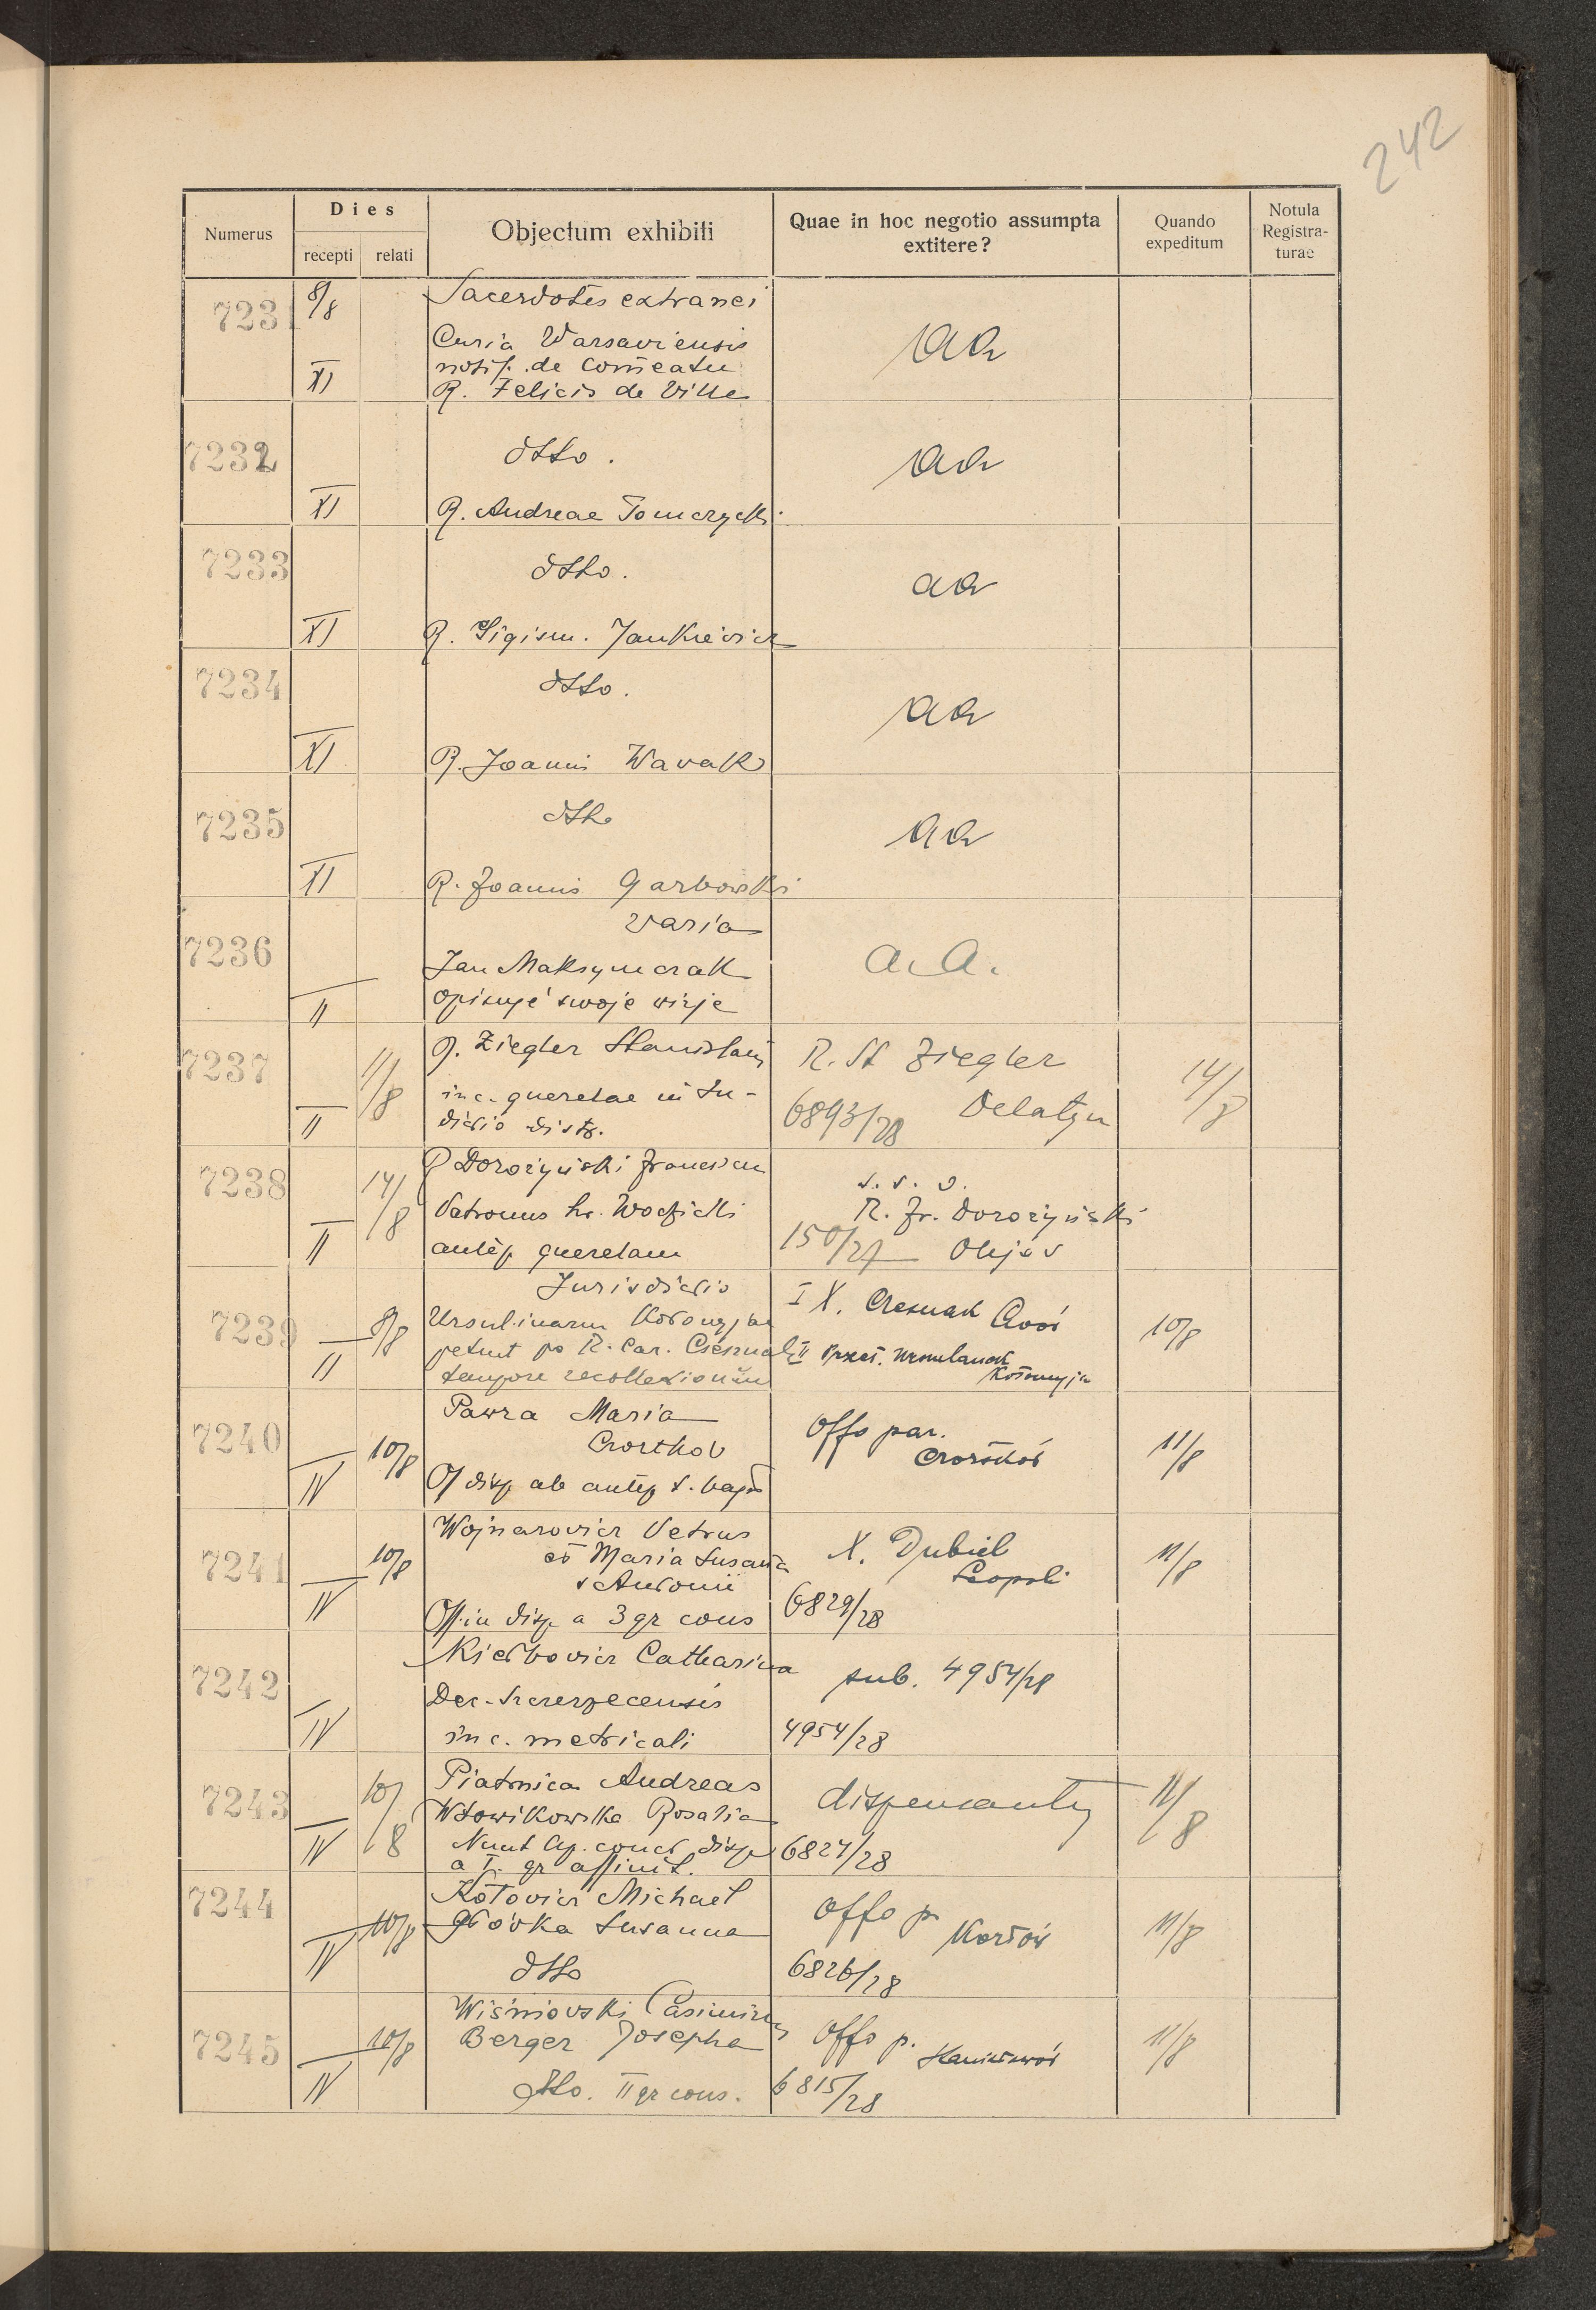 242
Numerus
Dies
recepti relati
Objectum exhibiti
Quae in hoc negotio assumpta extitere?
Quando expeditum
Notula Registra-turae
7231 8/8 Sacerdotes extranei
Curia Varsaviensis
notif. de comeatu
XI R. Felicis de Ville
aa
7232 dtto.
aa
XI R. Andreae Tomczycki
7233 dtto.
aa
XI R. Sigism. Jankievicz
7234 dtto.
aa
XI R. Joannis Wavak
7235 dtto
aa
XI R. Joannis Garbowski
7236 varia
Jan Maksymczak
a.a.
II opisuje swoje wizje
7237 11/8 R. Ziegler Stanislaus
R. St Ziegler 14/8
inc. querelae in Iu-
6893/28 Delatyn
II dicio distr.
7238 14/8 R Dorożyński Francisc
s. v. o.
Patronus hr. Wodzicki
R. Fr. Dorożyński
II antep querelam
150/27 Olejов
7239 8/8 Jurisdictio
Ursulinarum Kołomyjae
I X. Czesnak 10/8
II petunt pro R. Car. Czesnak
II Przeł. Urszulanek
Kołomyja
tempore recollexionum
7240 10/8 Pawza Maria
Czortkov
Offo par.
Czortków 11/8
IV Of disp ab antep s. bapt
7241 10/8 Wojnarovicz Petrus
et Maria Susanna
v Antonii
X. Dubiel
Leopoli 11/8
IV Off. in disp a 3 gr cons
6829/28
7242 Kiełbovicz Catharina
sub. 4954/28
Dec. Szczerzecensis
IV inc. metricali
4954/28
7243 10/8 Piatnica Andreas
Wdowikowska Rosalia
dispensantur 11/8
IV Nunt Ap. conct disp
a I. gr affinit.
6824/28
7244 10/8 Kotovicz Michael
Główka Susanna
Offo p
Kozłów 11/8
IV dtto
6826/28
7245 10/8 Wiśniovski Casimirus
Berger Josepha
Offo p. Stanisławów 11/8
IV dtto. II gr cons.
6815/28